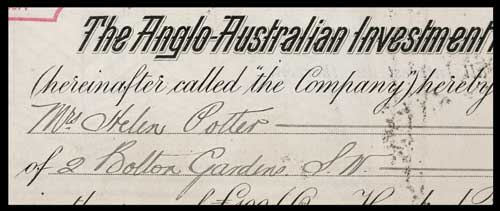 The Anglo-Australian Investment
(hereinafter called "the Company") hereby
Mrs Helen Potter
of 2 Bolton Gardens S.W.